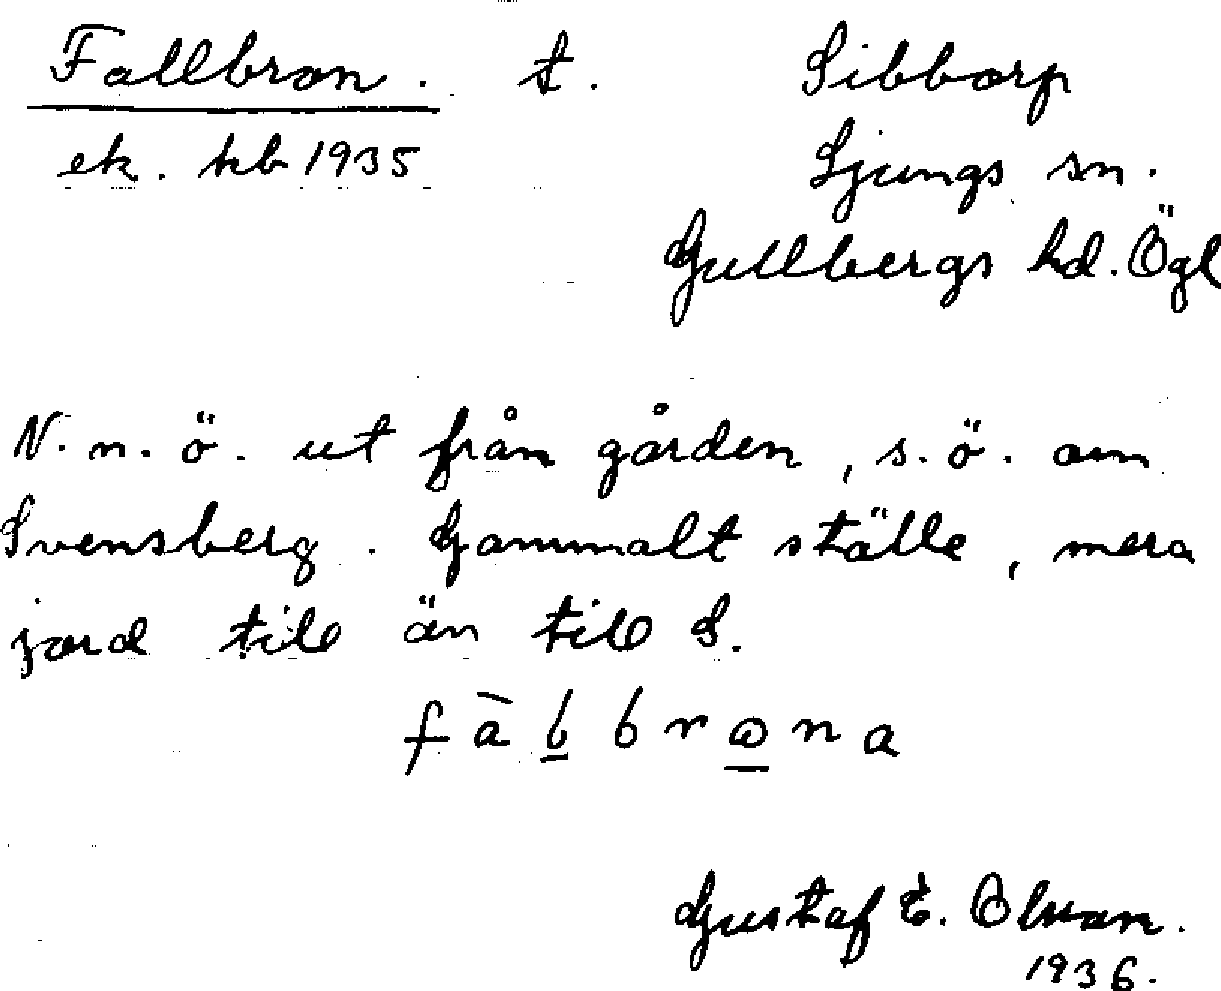 Fallbron. t. Sibborp
ek. kb 1935 Ljungs sn.
Gullbergs hd. Ögl
N.n.ö. ut från gården, s.ö. om
Svensberg. Gammalt ställe, mera
jord till än till S.
fābbrωna
Gustaf E. Olson.
1936.